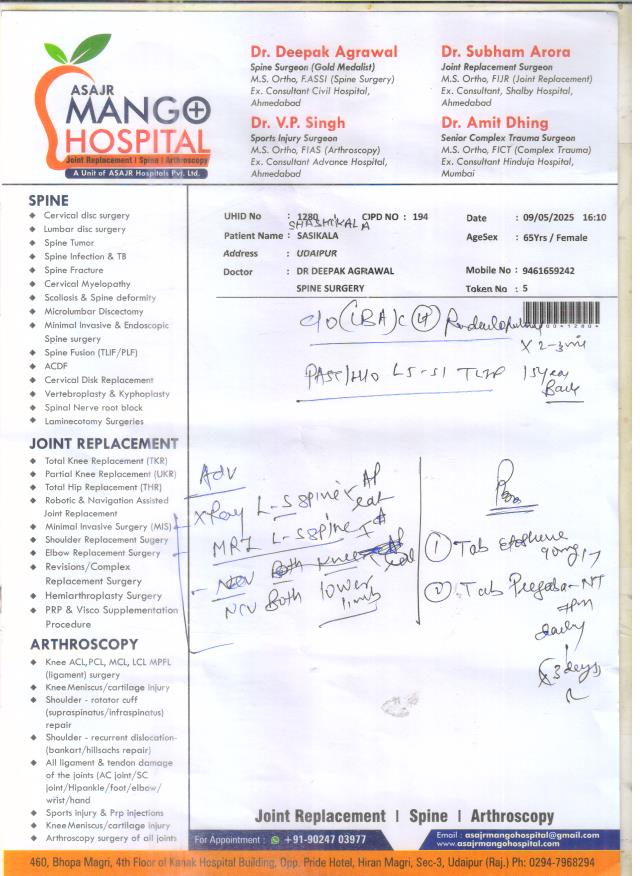 ASAJR
MANGO
HOSPITAL
Joint Replacement | Spine | Arthroscopy
A Unit of ASAJR Hospitals Pvt. Ltd.
Dr. Deepak Agrawal
Spine Surgeon (Gold Medalist)
M.S. Ortho, F.ASSI (Spine Surgery)
Ex. Consultant Civil Hospital,
Ahmedabad
Dr. Subham Arora
Joint Replacement Surgeon
M.S. Ortho, FIJR (Joint Replacement)
Ex. Consultant, Shalby Hospital,
Ahmedabad
Dr. V.P. Singh
Sports Injury Surgeon
M.S. Ortho, FIAS (Arthroscopy)
Ex. Consultant Advance Hospital,
Ahmedabad
Dr. Amit Dhing
Senior Complex Trauma Surgeon
M.S. Ortho, FICT (Complex Trauma)
Ex. Consultant Hinduja Hospital,
Mumbai
UHID No : 1280 CIPD NO : 194 Date : 09/05/2025 16:10
SHASHIKALA
Patient Name : SASIKALA AgeSex : 65Yrs / Female
Address : UDAIPUR
Doctor : DR DEEPAK AGRAWAL Mobile No : 9461659242
SPINE SURGERY Token No : 5
SPINE
Cervical disc surgery
Lumbar disc surgery
Spine Tumor
Spine Infection & TB
Spine Fracture
Cervical Myelopathy
Scoliosis & Spine deformity
Microlumbar Discectomy
Minimal Invasive & Endoscopic
Spine surgery
Spine Fusion (TLIF/PLF)
ACDF
Cervical Disk Replacement
Vertebroplasty & Kyphoplasty
Spinal Nerve root block
Laminectomy Surgeries
JOINT REPLACEMENT
Total Knee Replacement (TKR)
Partial Knee Replacement (UKR)
Total Hip Replacement (THR)
Robotic & Navigation Assisted
Joint Replacement
Minimal Invasive Surgery (MIS)
Shoulder Replacement Sugery
Elbow Replacement Surgery
Revisions/Complex
Replacement Surgery
Hemiarthroplasty Surgery
PRP & Visco Supplementation
Procedure
ARTHROSCOPY
Knee ACL,PCL, MCL, LCL MPFL
(ligament) surgery
Knee Meniscus/cartilage injury
Shoulder - rotator cuff
(supraspinatus/infraspinatus)
repair
Shoulder - recurrent dislocation-
(bankart/hillsachs repair)
All ligament & tendon damage
of the joints (AC joint/SC
joint/Hipankle/foot/elbow/
wrist/hand
Sports injury & Prp injections
Knee Meniscus/cartilage injury
Arthroscopy surgery of all joints
c/o (LBA) c
PAST/H/O L5-S1 15 year
Back
Adv
X Ray L-S spine AP
Lat
MRI L-S spine
NCV Both lower
limb
1 Tab 90mg
2 Tab Pregaba-NT
daily
x 3 days
Joint Replacement | Spine | Arthroscopy
For Appointment : +91-90247 03977
Email : asajrmangohospital@gmail.com
www.asajrmangohospital.com
460, Bhopa Magri, 4th Floor of Kanak Hospital Building, Opp. Pride Hotel, Hiran Magri, Sec-3, Udaipur (Raj.) Ph: 0294-7968294